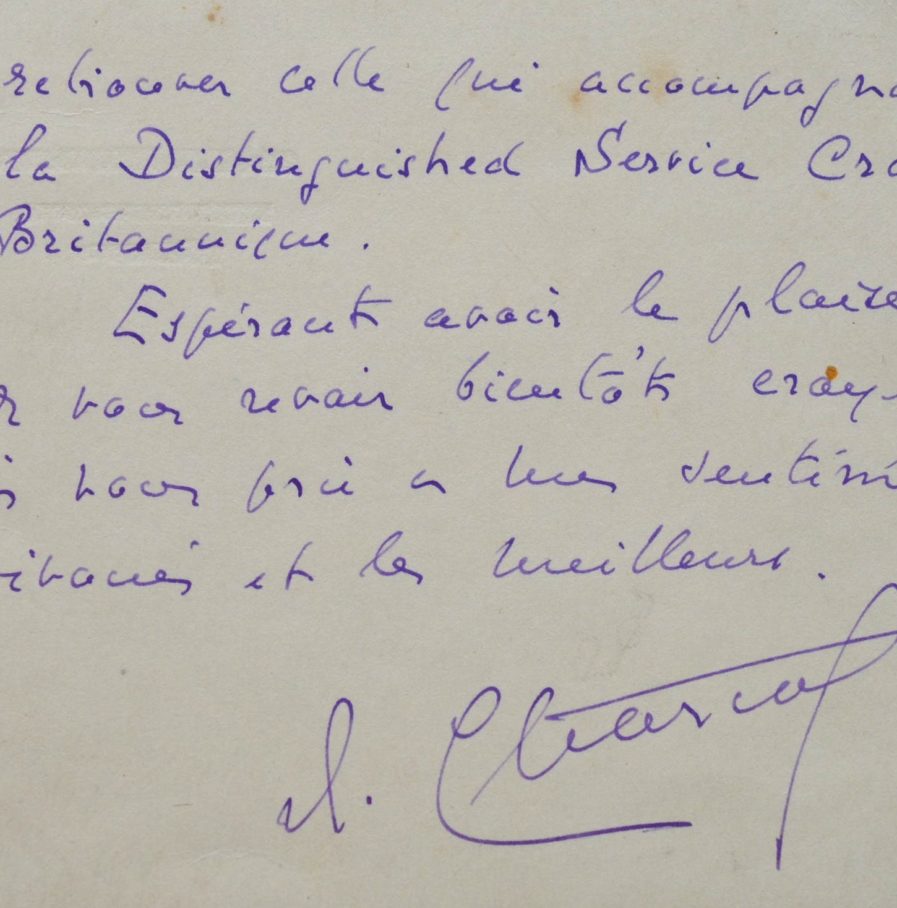 retrouver celle qui accompagna
la Distinguished Service Cro
Britannique.
Espérant avoir le plaisi
vous revoir bientôt croy-
vous prie à mes sentim
et les meilleurs.
J. Charcot